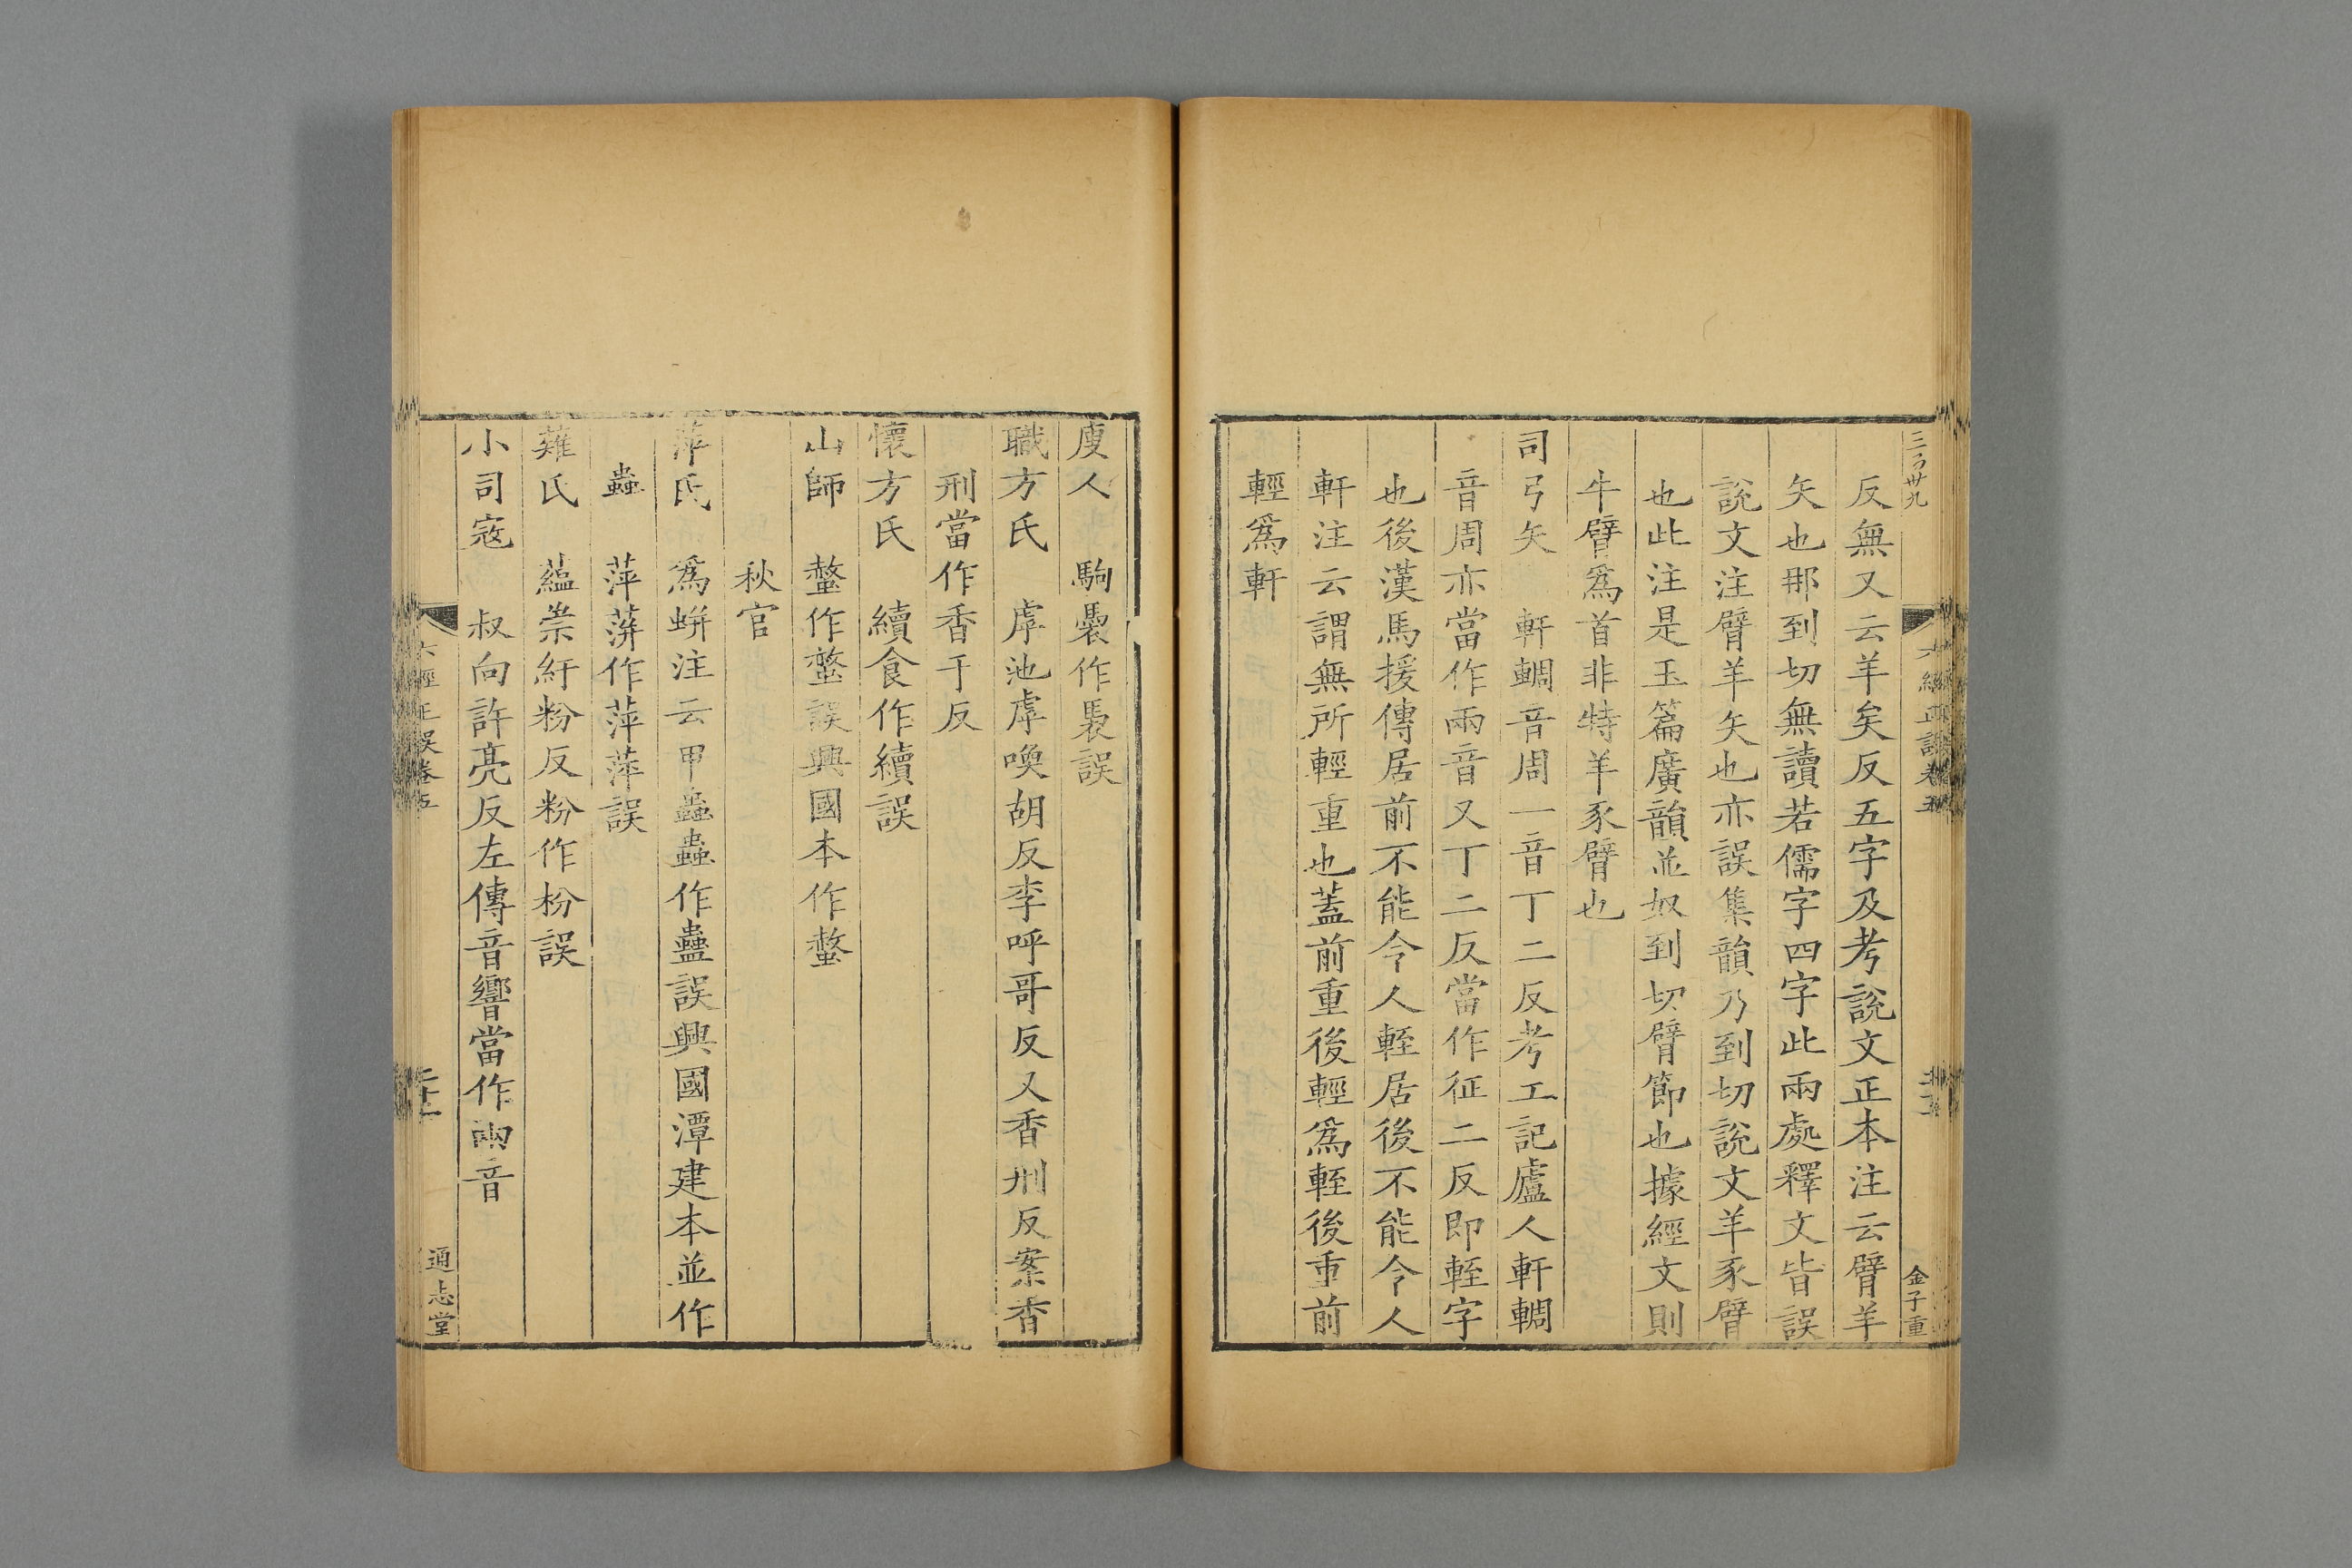 反無又云羊矣反五字及考說文正本注云臂羊
矢也那到切無讀若儒字四字此兩處釋文皆誤
說文注臂羊矢也亦誤集韻乃到切說文羊豕臂
也此注是玉篇廣韻並奴到切臂節也據經文則
牛臂爲首非特羊豕臂也
司弓矢 軒輖音周一音丁二反考工記廬人軒輖
音周亦當作兩音又丁二反當作征二反即輊字
也後漢馬援傳居前不能令人輊居後不能令人
軒注云謂無所輕重也蓋前重後輕爲輊後重前
輕爲軒
金子重
廋人 駒褭作裊誤
職方氏 虖池虖喚胡反李呼哥反又香刑反案香
刑當作香于反
懷方氏 續食作續誤
山師 螫作螫誤興國本作螫
秋官
萍氏 爲蛢注云甲蟲蟲作蠱誤興國潭建本並作
蟲 萍蓱作萍萍誤
薙氏 蘊崇紆粉反粉作枌誤
小司寇 叔向許亮反左傳音響當作兩音
六經正誤卷五
通志堂